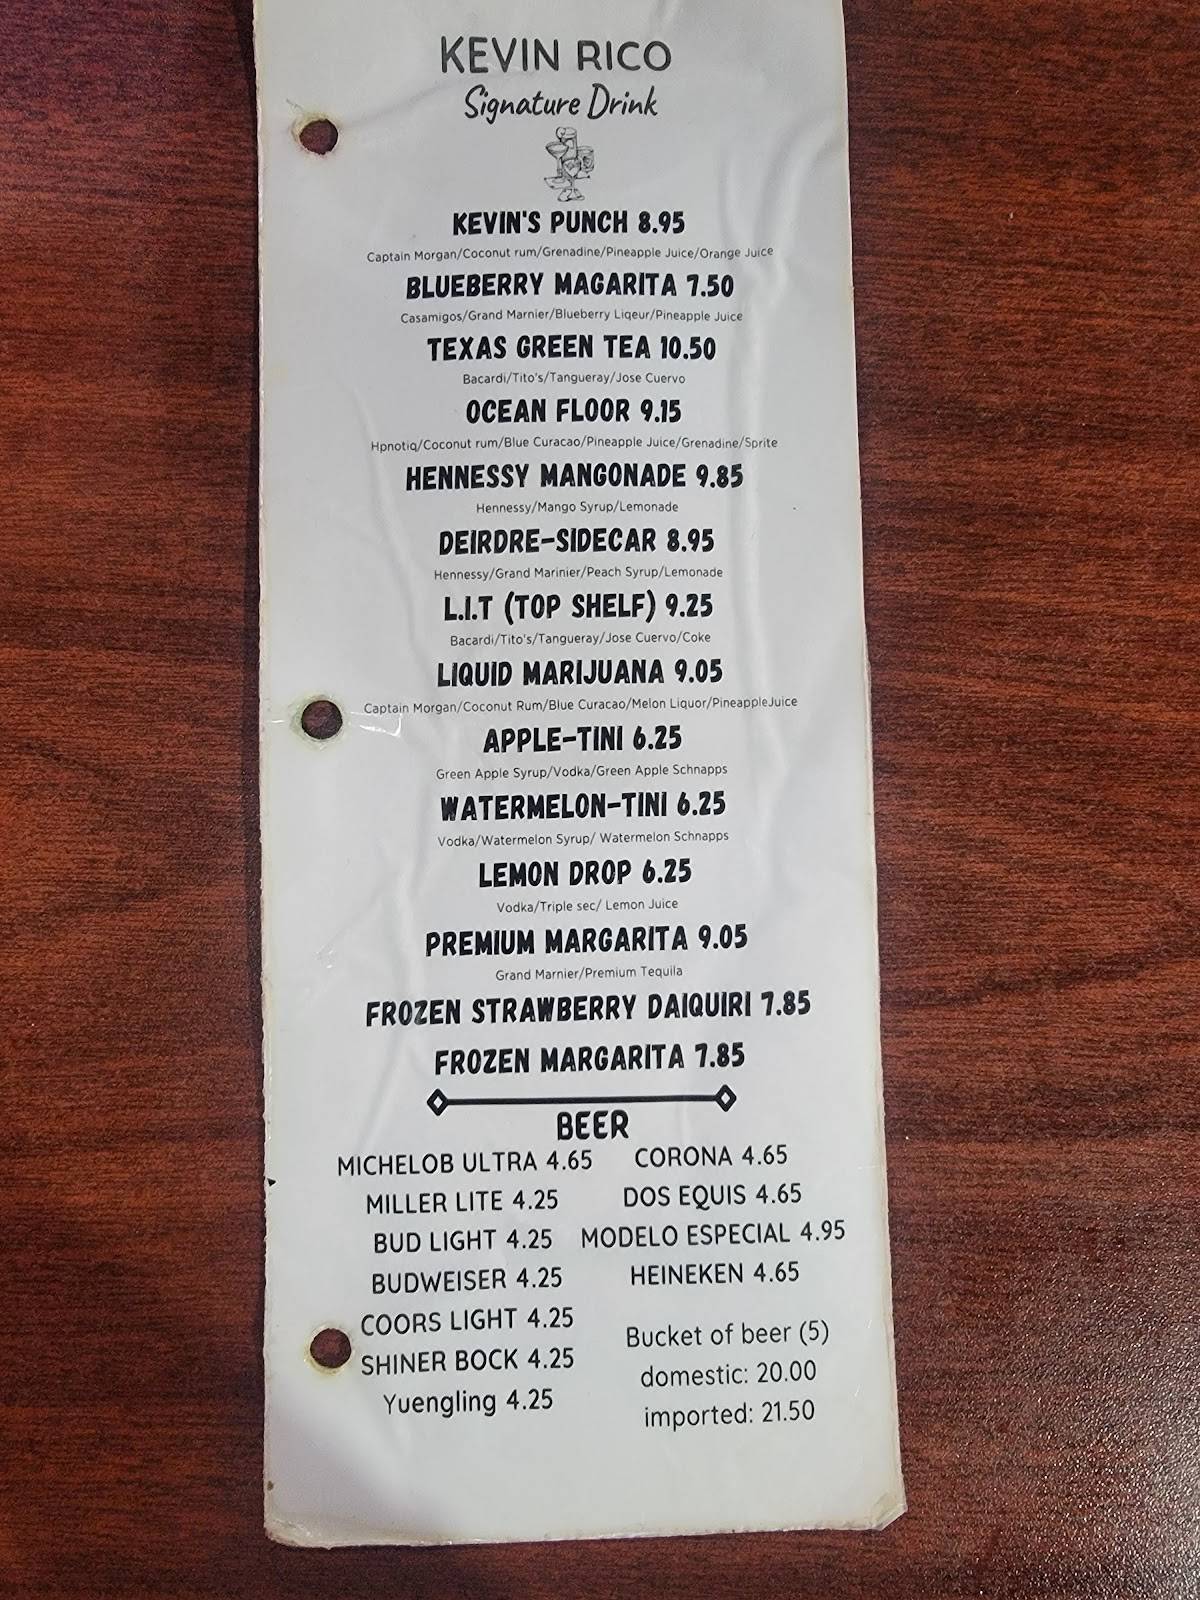 KEVIN RICO
Signature Drink
KEVIN'S PUNCH 8.95
Captain Morgan/Coconut rum/Grenadine/Pineapple Juice/Orange Juice
BLUEBERRY MAGARITA 7.50
Casamigos/Grand Marnier/Blueberry Liqeur/Pineapple Juice
TEXAS GREEN TEA 10.50
Bacardi/Tito's/Tangueray/Jose Cuervo
OCEAN FLOOR 9.15
Hpnotiq/Coconut rum/Blue Curacao/Pineapple Juice/Grenadine/Sprite
HENNESSY MANGONADE 9.85
Hennessy/Mango Syrup/Lemonade
DEIRDRE-SIDECAR 8.95
Hennessy/Grand Marinier/Peach Syrup/Lemonade
L.I.T (TOP SHELF) 9.25
Bacardi/Tito's/Tangueray/Jose Cuervo/Coke
LIQUID MARIJUANA 9.05
Captain Morgan/Coconut Rum/Blue Curacao/Melon Liquor/PineappleJuice
APPLE-TINI 6.25
Green Apple Syrup/Vodka/Green Apple Schnapps
WATERMELON-TINI 6.25
Vodka/Watermelon Syrup/ Watermelon Schnapps
LEMON DROP 6.25
Vodka/Triple sec/ Lemon Juice
PREMIUM MARGARITA 9.05
Grand Marnier/Premium Tequila
FROZEN STRAWBERRY DAIQUIRI 7.85
FROZEN MARGARITA 7.85
BEER
MICHELOB ULTRA 4.65
MILLER LITE 4.25
BUD LIGHT 4.25
BUDWEISER 4.25
COORS LIGHT 4.25
SHINER BOCK 4.25
Yuengling 4.25
CORONA 4.65
DOS EQUIS 4.65
MODELO ESPECIAL 4.95
HEINEKEN 4.65
Bucket of beer (5)
domestic: 20.00
imported: 21.50